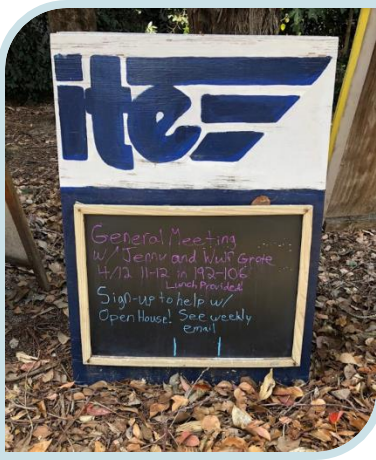 ite
General Meeting
w/ Jenny and Wulf Grote
4/12 11-12 in 192-106
Lunch Provided!
Sign-up to help w/
Open House! See weekly
email